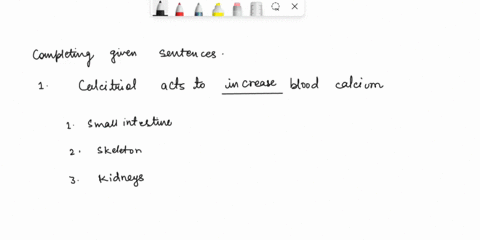 Completing given sentences.
1. Calcitrial acts to increase blood calcium
1. Small intestine
2. Skeleton
3. Kidneys